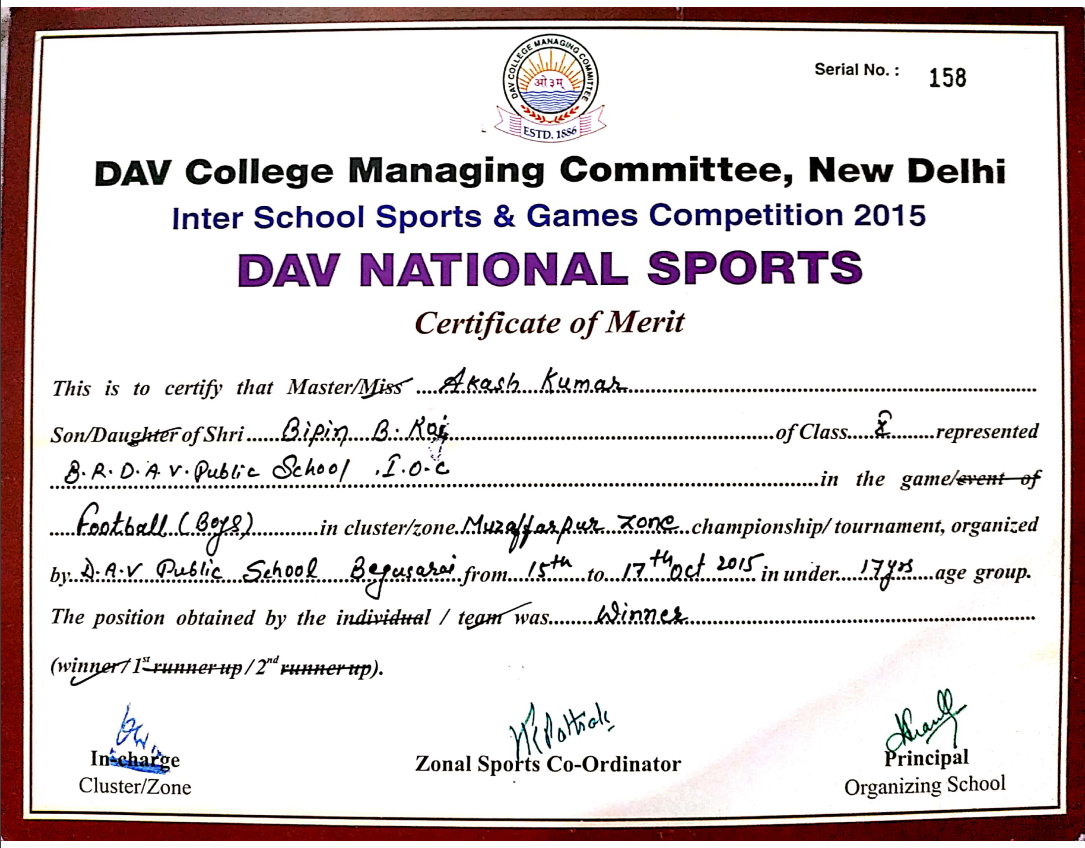 DAV COLLEGE MANAGING COMMITTEE
ओ३म्
ESTD. 1886
Serial No. : 158
DAV College Managing Committee, New Delhi
Inter School Sports & Games Competition 2015
DAV NATIONAL SPORTS
Certificate of Merit
This is to certify that Master/Miss Akash Kumar
Son/Daughter of Shri Bipin B. Raj of Class X represented
B.R.D.A.V. Public School .I.O.C in the game/event of
Football (Boys) in cluster/zone Muzaffarpur Zone championship/ tournament, organized
by D.A.V Public School Begusarai from 15th to 17th Oct 2015 in under 17yrs age group.
The position obtained by the individual / team was Winner
(winner/ 1st runner up / 2nd runner up).
In-charge
Cluster/Zone
Zonal Sports Co-Ordinator
Principal
Organizing School